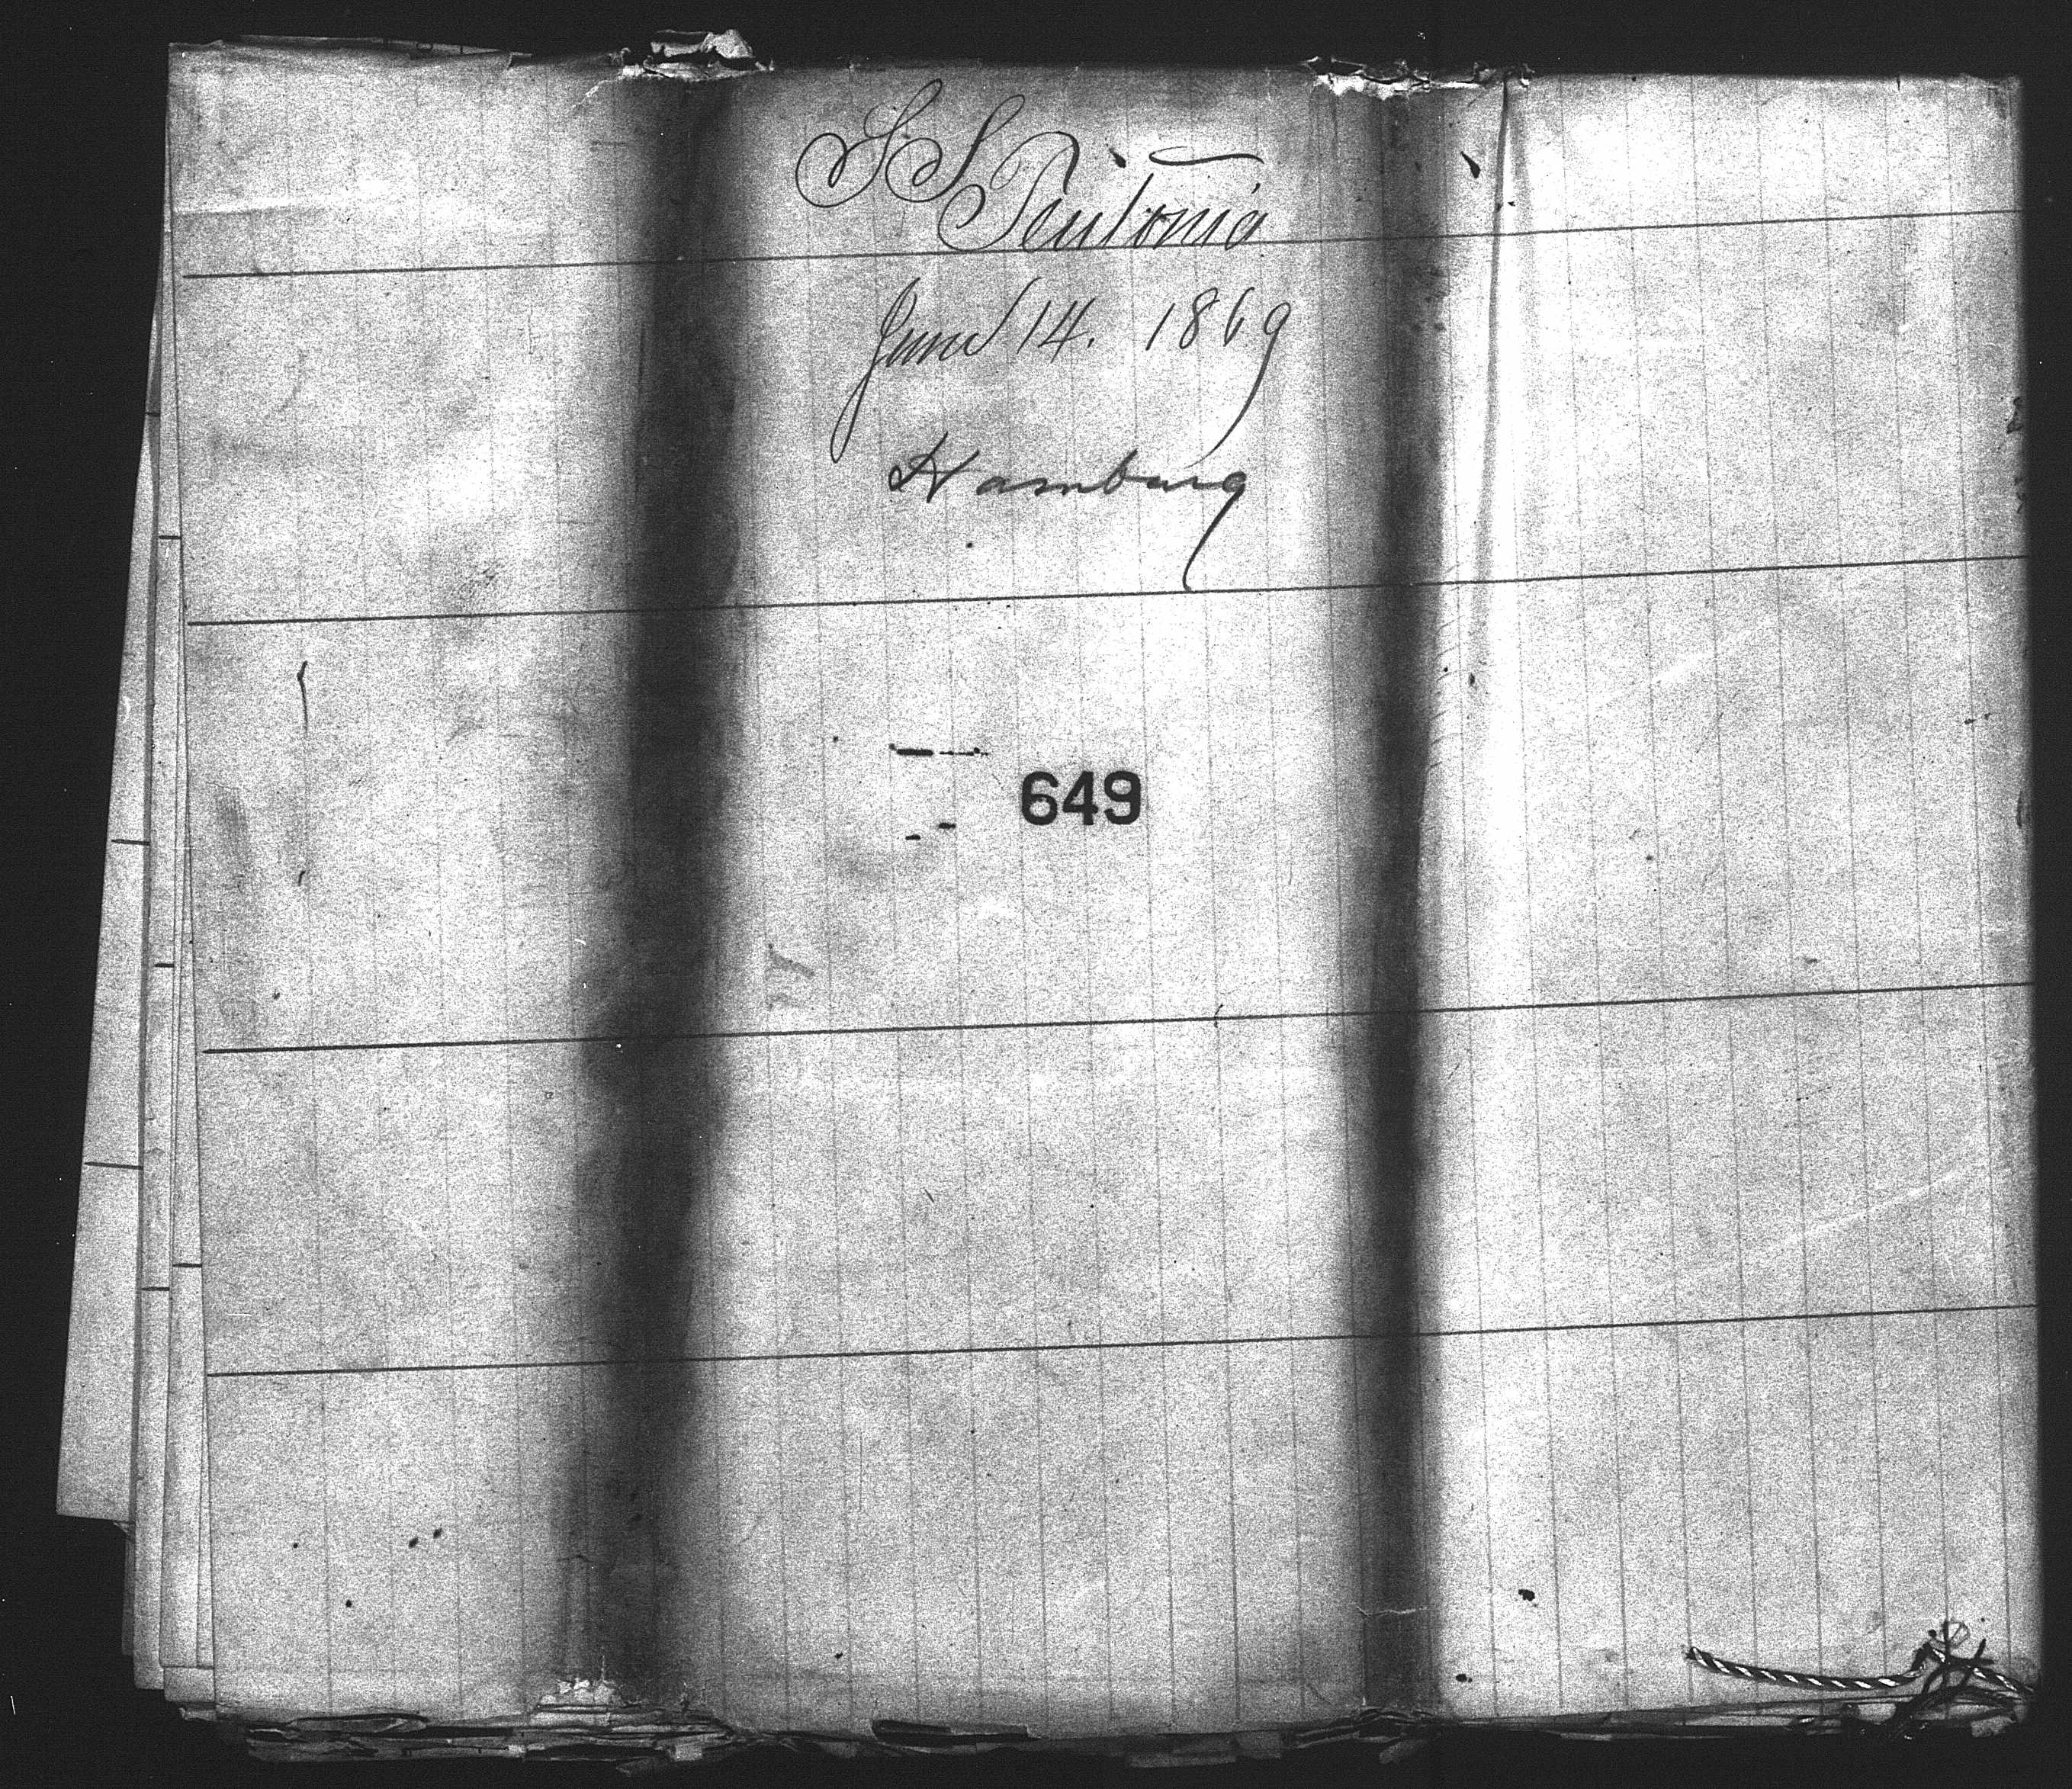 SS Teutonia
June 14. 1869
Hamburg
649